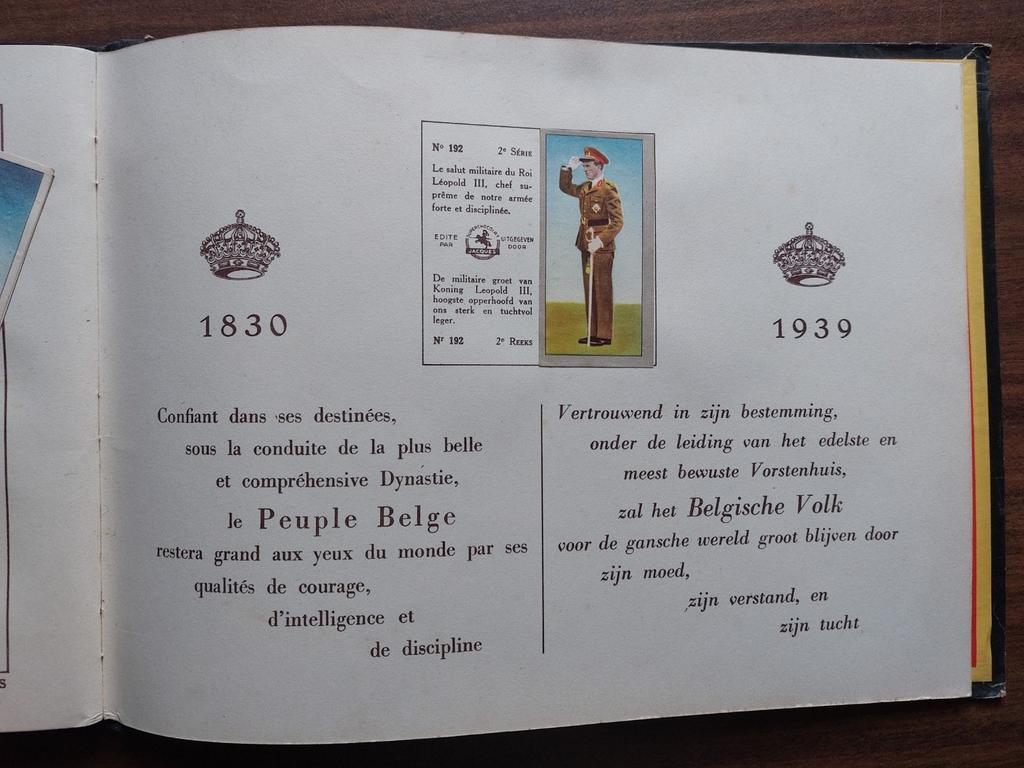 Nº 192 2e SÉRIE
Le salut militaire du Roi
Léopold III, chef su-
prême de notre armée
forte et disciplinée.
EDITE PAR
SUPERCHOCOLAT
JACQUES
UITGEGEVEN DOOR
De militaire groet van
Koning Leopold III,
hoogste opperhoofd van
ons sterk en tuchtvol
leger.
Nr 192 2e REEKS
1830
1939
Confiant dans ses destinées,
sous la conduite de la plus belle
et compréhensive Dynastie,
le Peuple Belge
restera grand aux yeux du monde par ses
qualités de courage,
d'intelligence et
de discipline
Vertrouwend in zijn bestemming,
onder de leiding van het edelste en
meest bewuste Vorstenhuis,
zal het Belgische Volk
voor de gansche wereld groot blijven door
zijn moed,
zijn verstand, en
zijn tucht
S